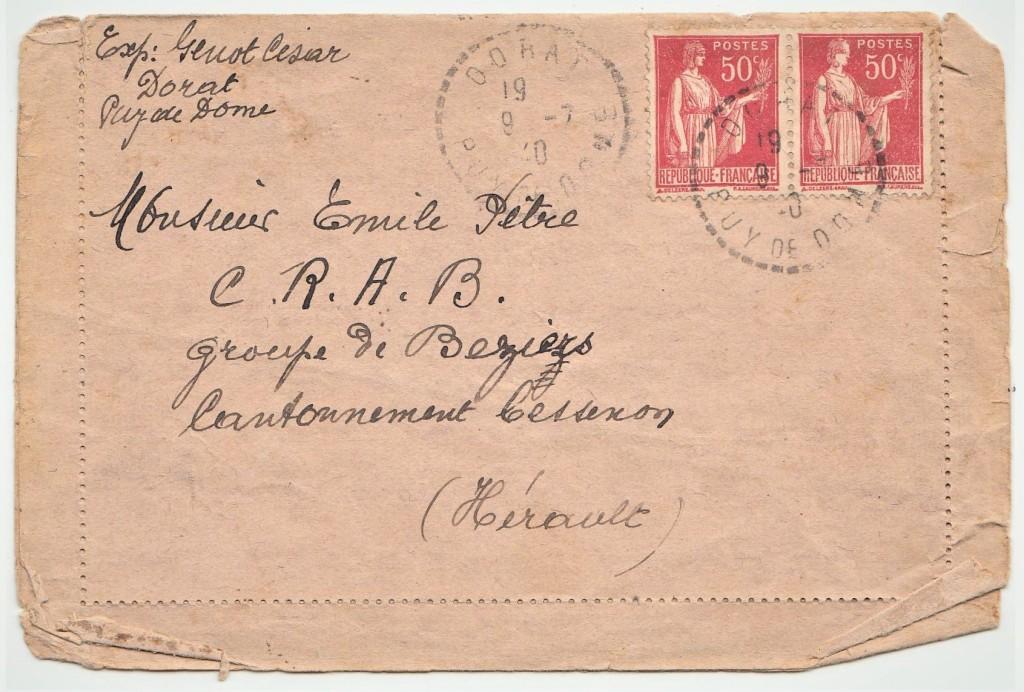 Exp: Genot Cesar
Dorat
Puy de Dome
DORAT
19
8 -7
40
PUY DE DOME
POSTES
50c
REPUBLIQUE-FRANÇAISE
POSTES
50c
REPUBLIQUE-FRANÇAISE
DORAT
19
8
PUY DE DOME
Monsieur Emile Pêtre
C. R. A. B.
groupe de Beziers
Cantonnement Cessenon
(Hérault)